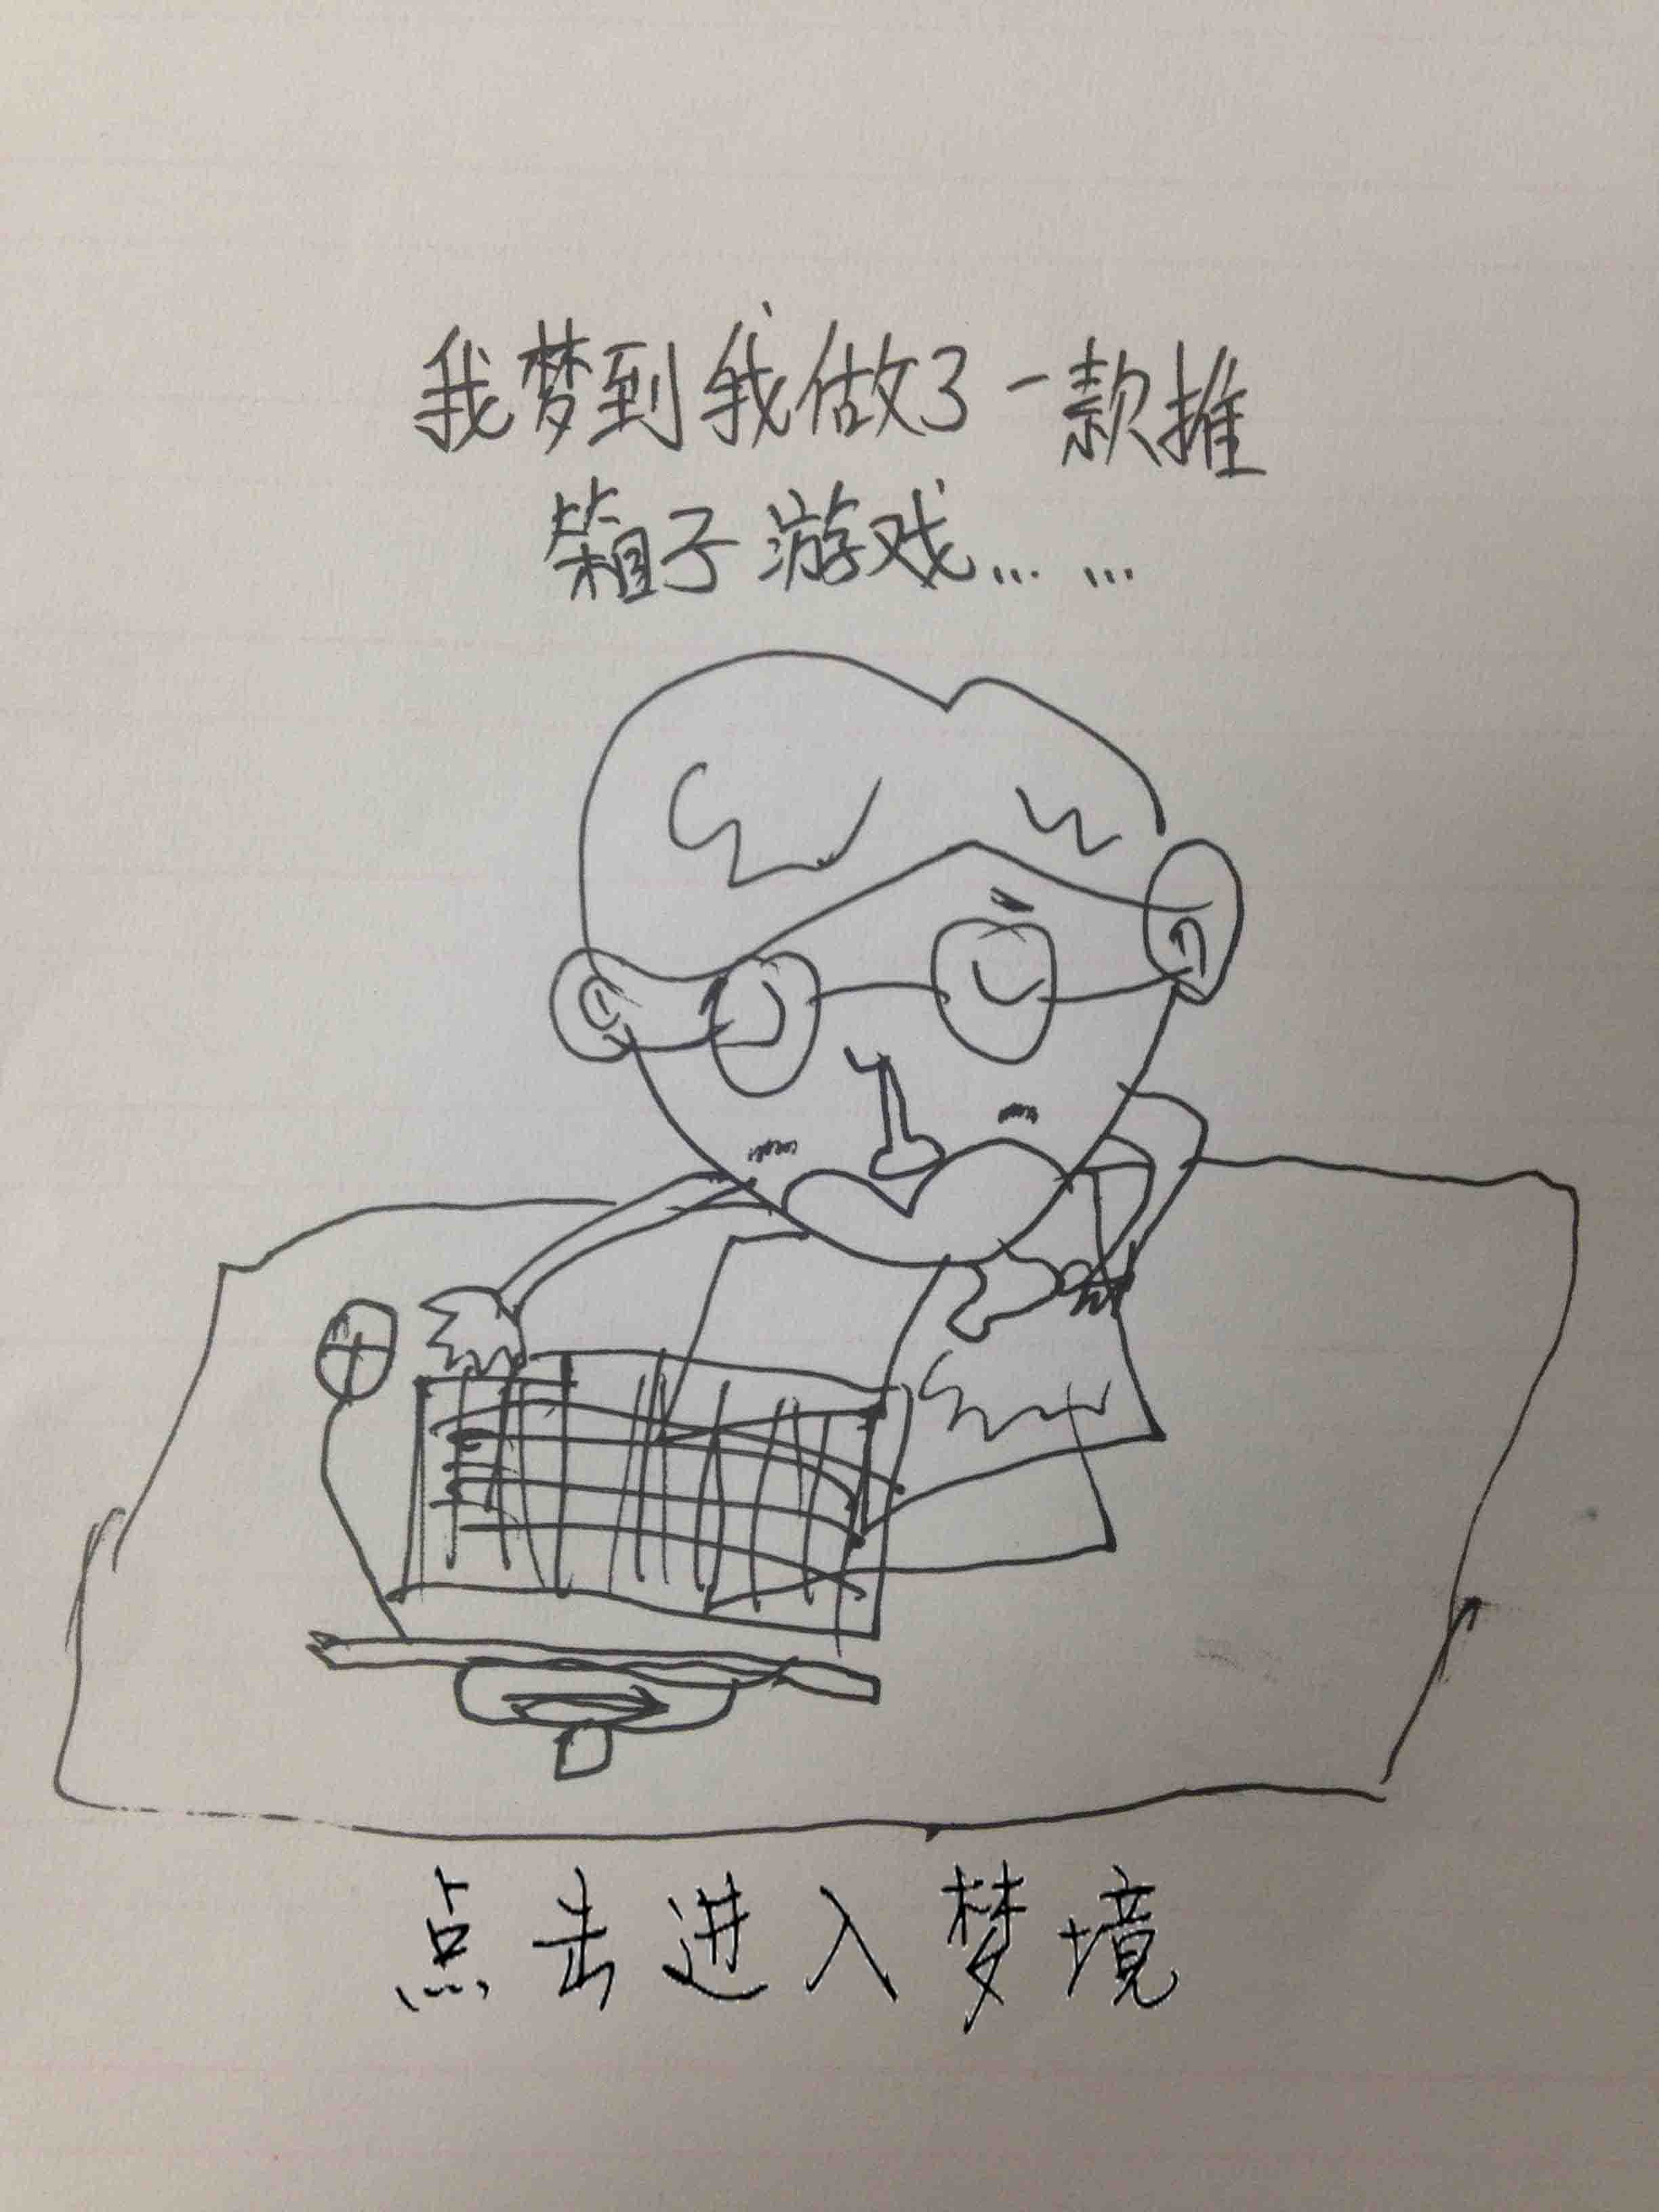 我梦到我做了一款推
箱子游戏... ...
点击进入梦境